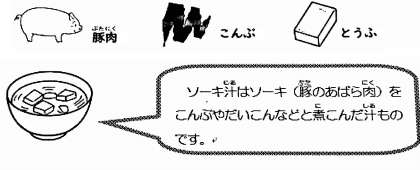 ぶたにく
豚肉 こんぶ とうふ
ソーキ汁はソーキ（豚のあばら肉）を
こんぶやだいこんなどと煮こんだ汁もの
です。